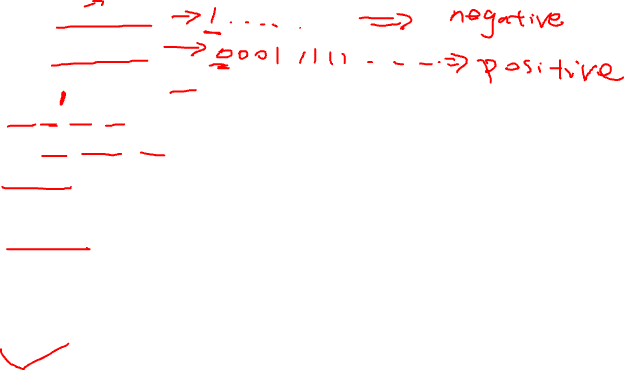 → 1 ..... ⇒ negative
→ 0001 1111 ..... ⇒ positive
1